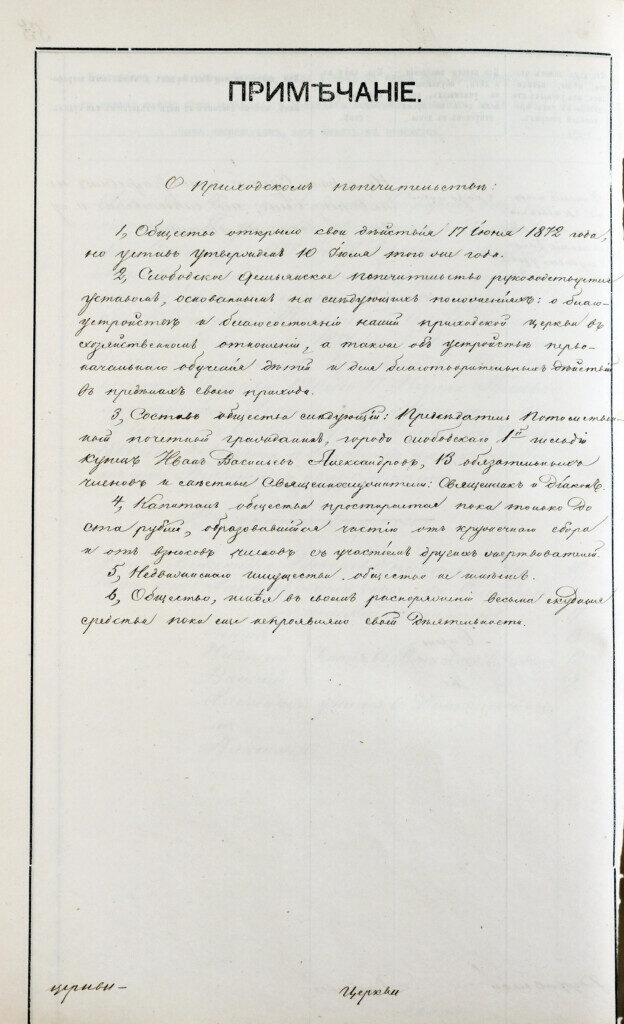 ПРИМѢЧАНІЕ.
О приходскомъ попечительствѣ:
1, Общество открыло свои дѣйствія 17 Іюня 1872 года,
но уставъ утвержденъ 10 Іюля того же года.
2, Слободское попечительство руководствуется
уставомъ, основаннымъ на слѣдующихъ положеніяхъ: о благо-
устройствѣ и благосостояніи нашей приходской церкви въ
хозяйственномъ отношеніи, а также объ устройствѣ перво-
начальнаго обученія дѣтей и для благотворительныхъ дѣйствій
въ предѣлахъ своего прихода.
3, Составъ общества слѣдующій: Предсѣдатель Потомствен-
ный почетный гражданинъ, города Слободскаго 1й гильдіи
купецъ Иванъ Васильевъ Александровъ, 13 обязательныхъ
членовъ и Священнослужители: Священникъ и Діаконъ.
4, Капиталъ общества простирается пока только до
ста рублей, образовавшійся частію отъ кружечнаго сбора
и отъ взносовъ членовъ съ участіемъ другихъ жертвователей.
5, Недвижимаго имущества общество не имѣетъ.
6, Общество, имѣя въ своемъ распоряженіи весьма скудныя
средства пока еще непроявляло своей дѣятельности.
церкви-
Церкви